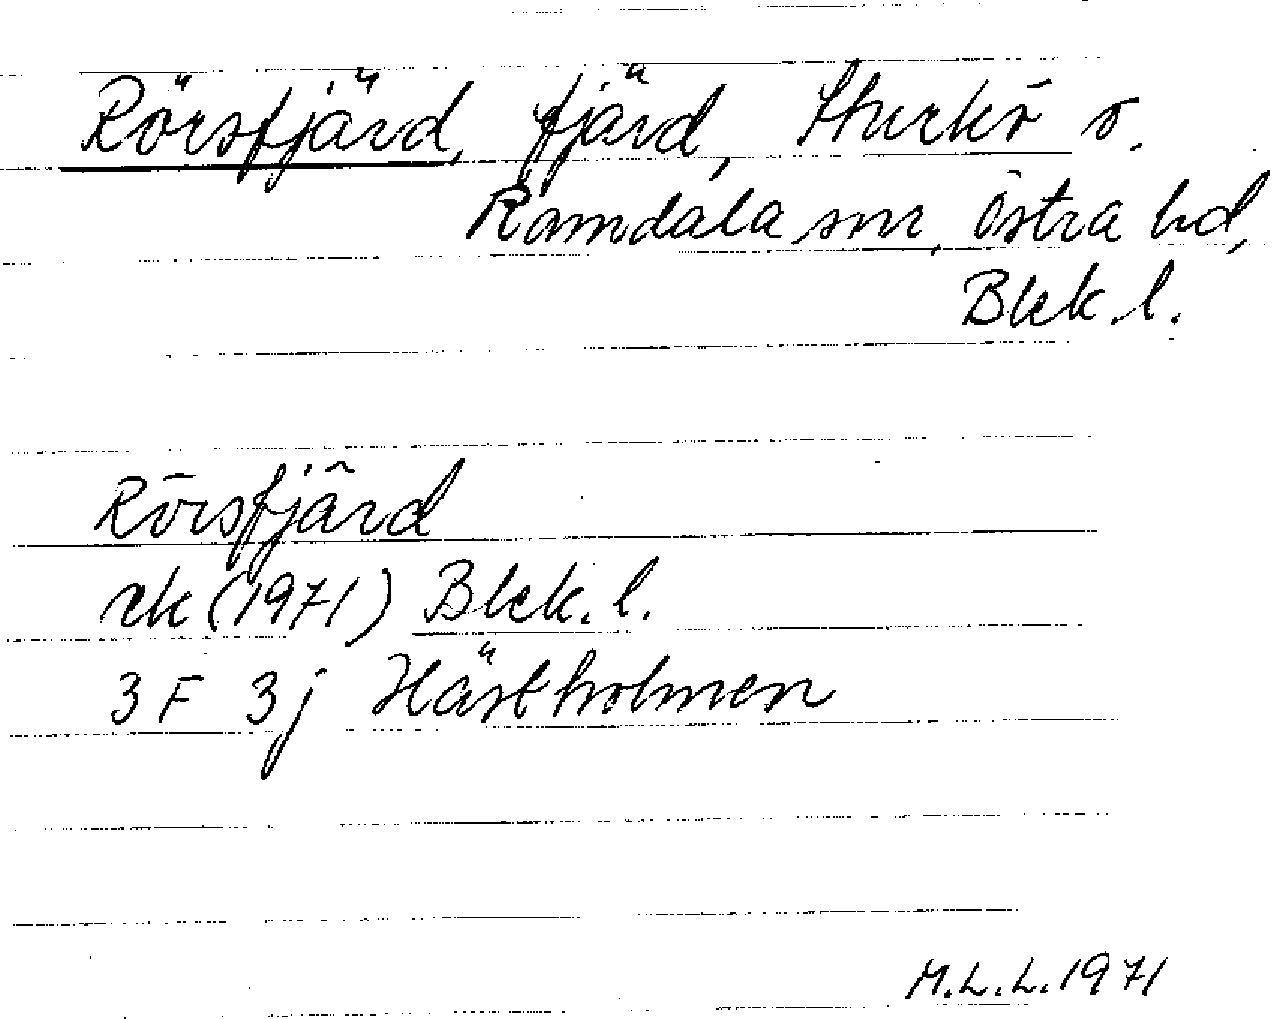 Rörsfjärd, fjärd, Sturkö o.
Ramdala snr, Östra hd,
Blek. l.
Rörsfjärd
rk (1971) Blek. l.
3 F 3j Hästholmen
M.L.L. 1971